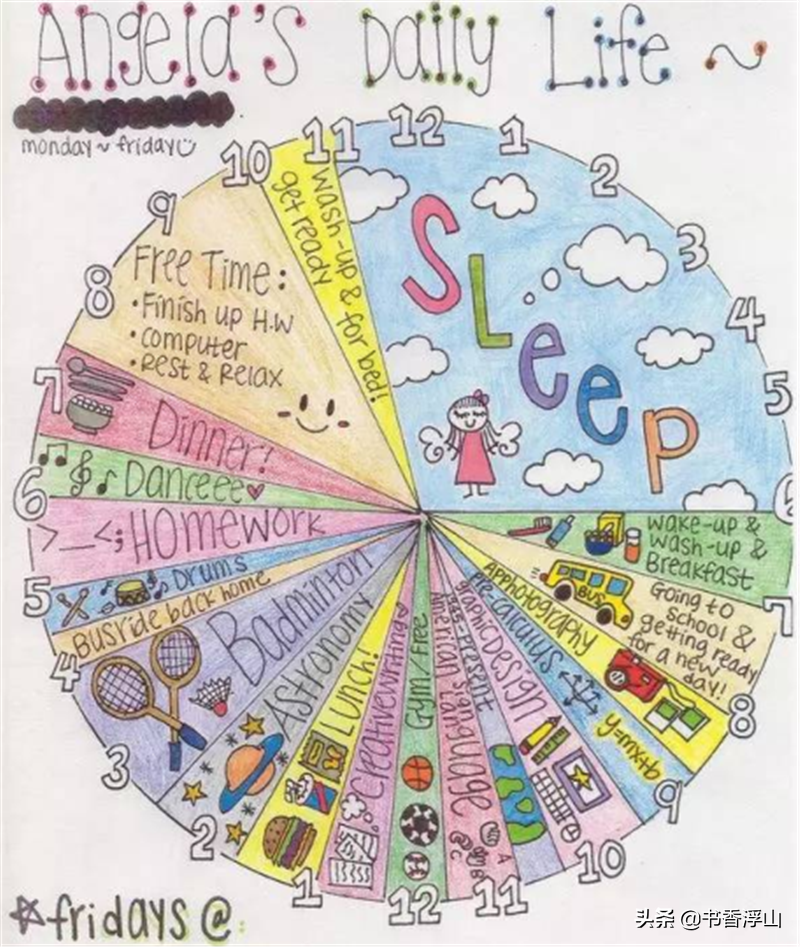 Angela's Daily Life ~
monday ~ friday
12
1
2
3
4
5
6
7
8
9
10
11
12
1
2
3
4
5
6
7
8
9
10
11
SLeep
wake-up &
wash-up &
Breakfast
BUS
Going to
school &
getting ready
for a new
day!
APPhotography
Pre-calculus
y=mx+b
graphicDesign
American Sign Language
Gym/Free
Creativewriting
Lunch!
Astronomy
Badminton
Busride back home
Drums
>__<; Homework
Danceee
Dinner!
Free Time:
• Finish up H.W
• computer
• Rest & Relax
wash-up &
get ready for bed!
fridays @
头条 @书香浮山